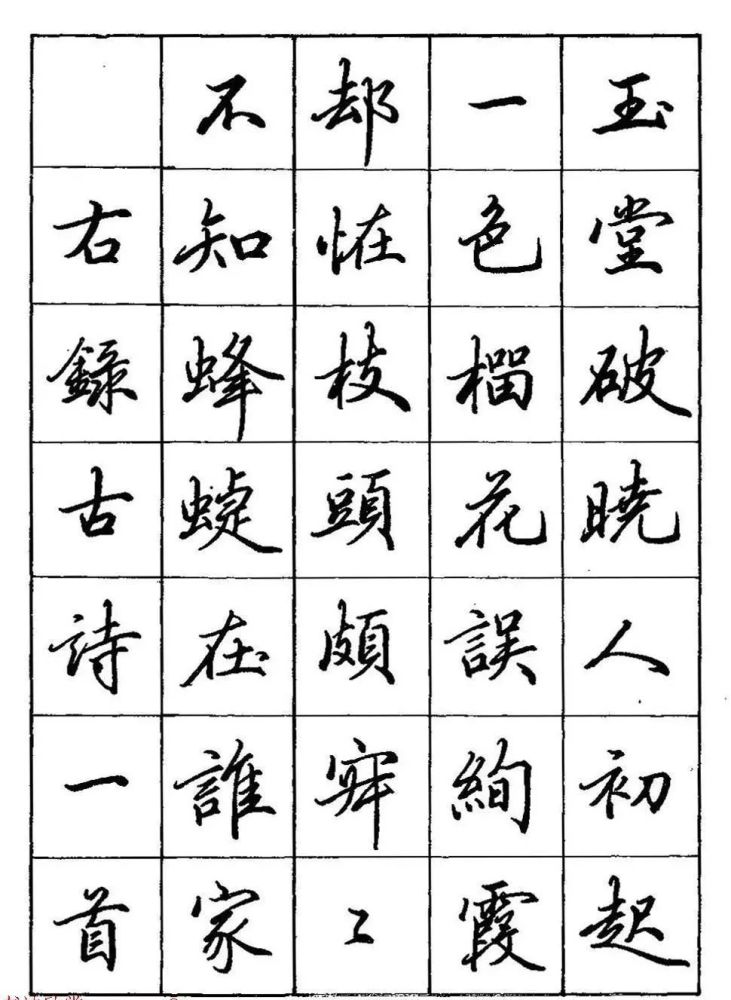 玉堂破曉人初起
一色榴花誤絢霞
却恠枝頭頗寂〻
不知蜂蜨在誰家
右錄古詩一首